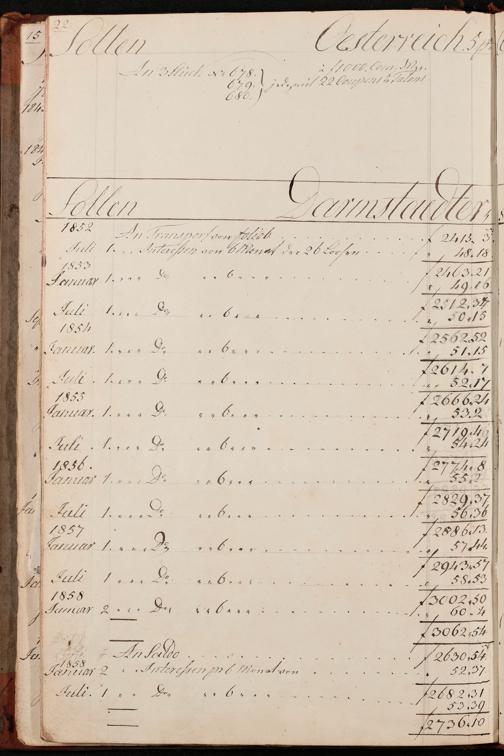 22
15
Sollen Oesterreich 5 pr
An 3 Stück No 678. à 1000 Con. Mze.
679. jedes mit 22 Coupons & Talons
686.
Sollen Darmstaedter
1852 An Transport von f 2413. 3
Juli 1. Interessen von 6 Monat der 26 Loosen " 48.18
1853 f 2463.21
Januar 1. " " " Do " " 6 " " " 49.16
f 2512.37
Juli 1. " " " Do " " 6 " " " 50.15
1854 f 2562.52
Januar. 1. " " " Do " " 6 " " " 51.15
f 2614.7
Juli . 1. " " " Do " " 6 " " " 52.17
1855 f 2666.24
Januar. 1. " " " Do " " 6 " " " 53.2
f 2719.4
Juli 1. " " " Do " " 6 " " " 54.24
1856. f 2774.8
Januar 1. " " " Do " " 6 " " " 55.2
f 2829.37
Juli 1. " " " Do " " 6 " " " 56.36
1857 f 2886.13
Januar 1. " " " Do " " 6 " " " 57.44
f 2943.57
Juli 1. " " " Do " " 6 " " " 58.53
1858 f 3002.50
Januar 2 " " " Do " " 6 " " " 60.4
f 3062.54
An Saldo f 2630.54
1858
Januar 2 " Interessen pr 6 Monat von " 52.37
Juli. 1 " " " Do " " 6 " " f 2682.31
53.39
f 2736.10